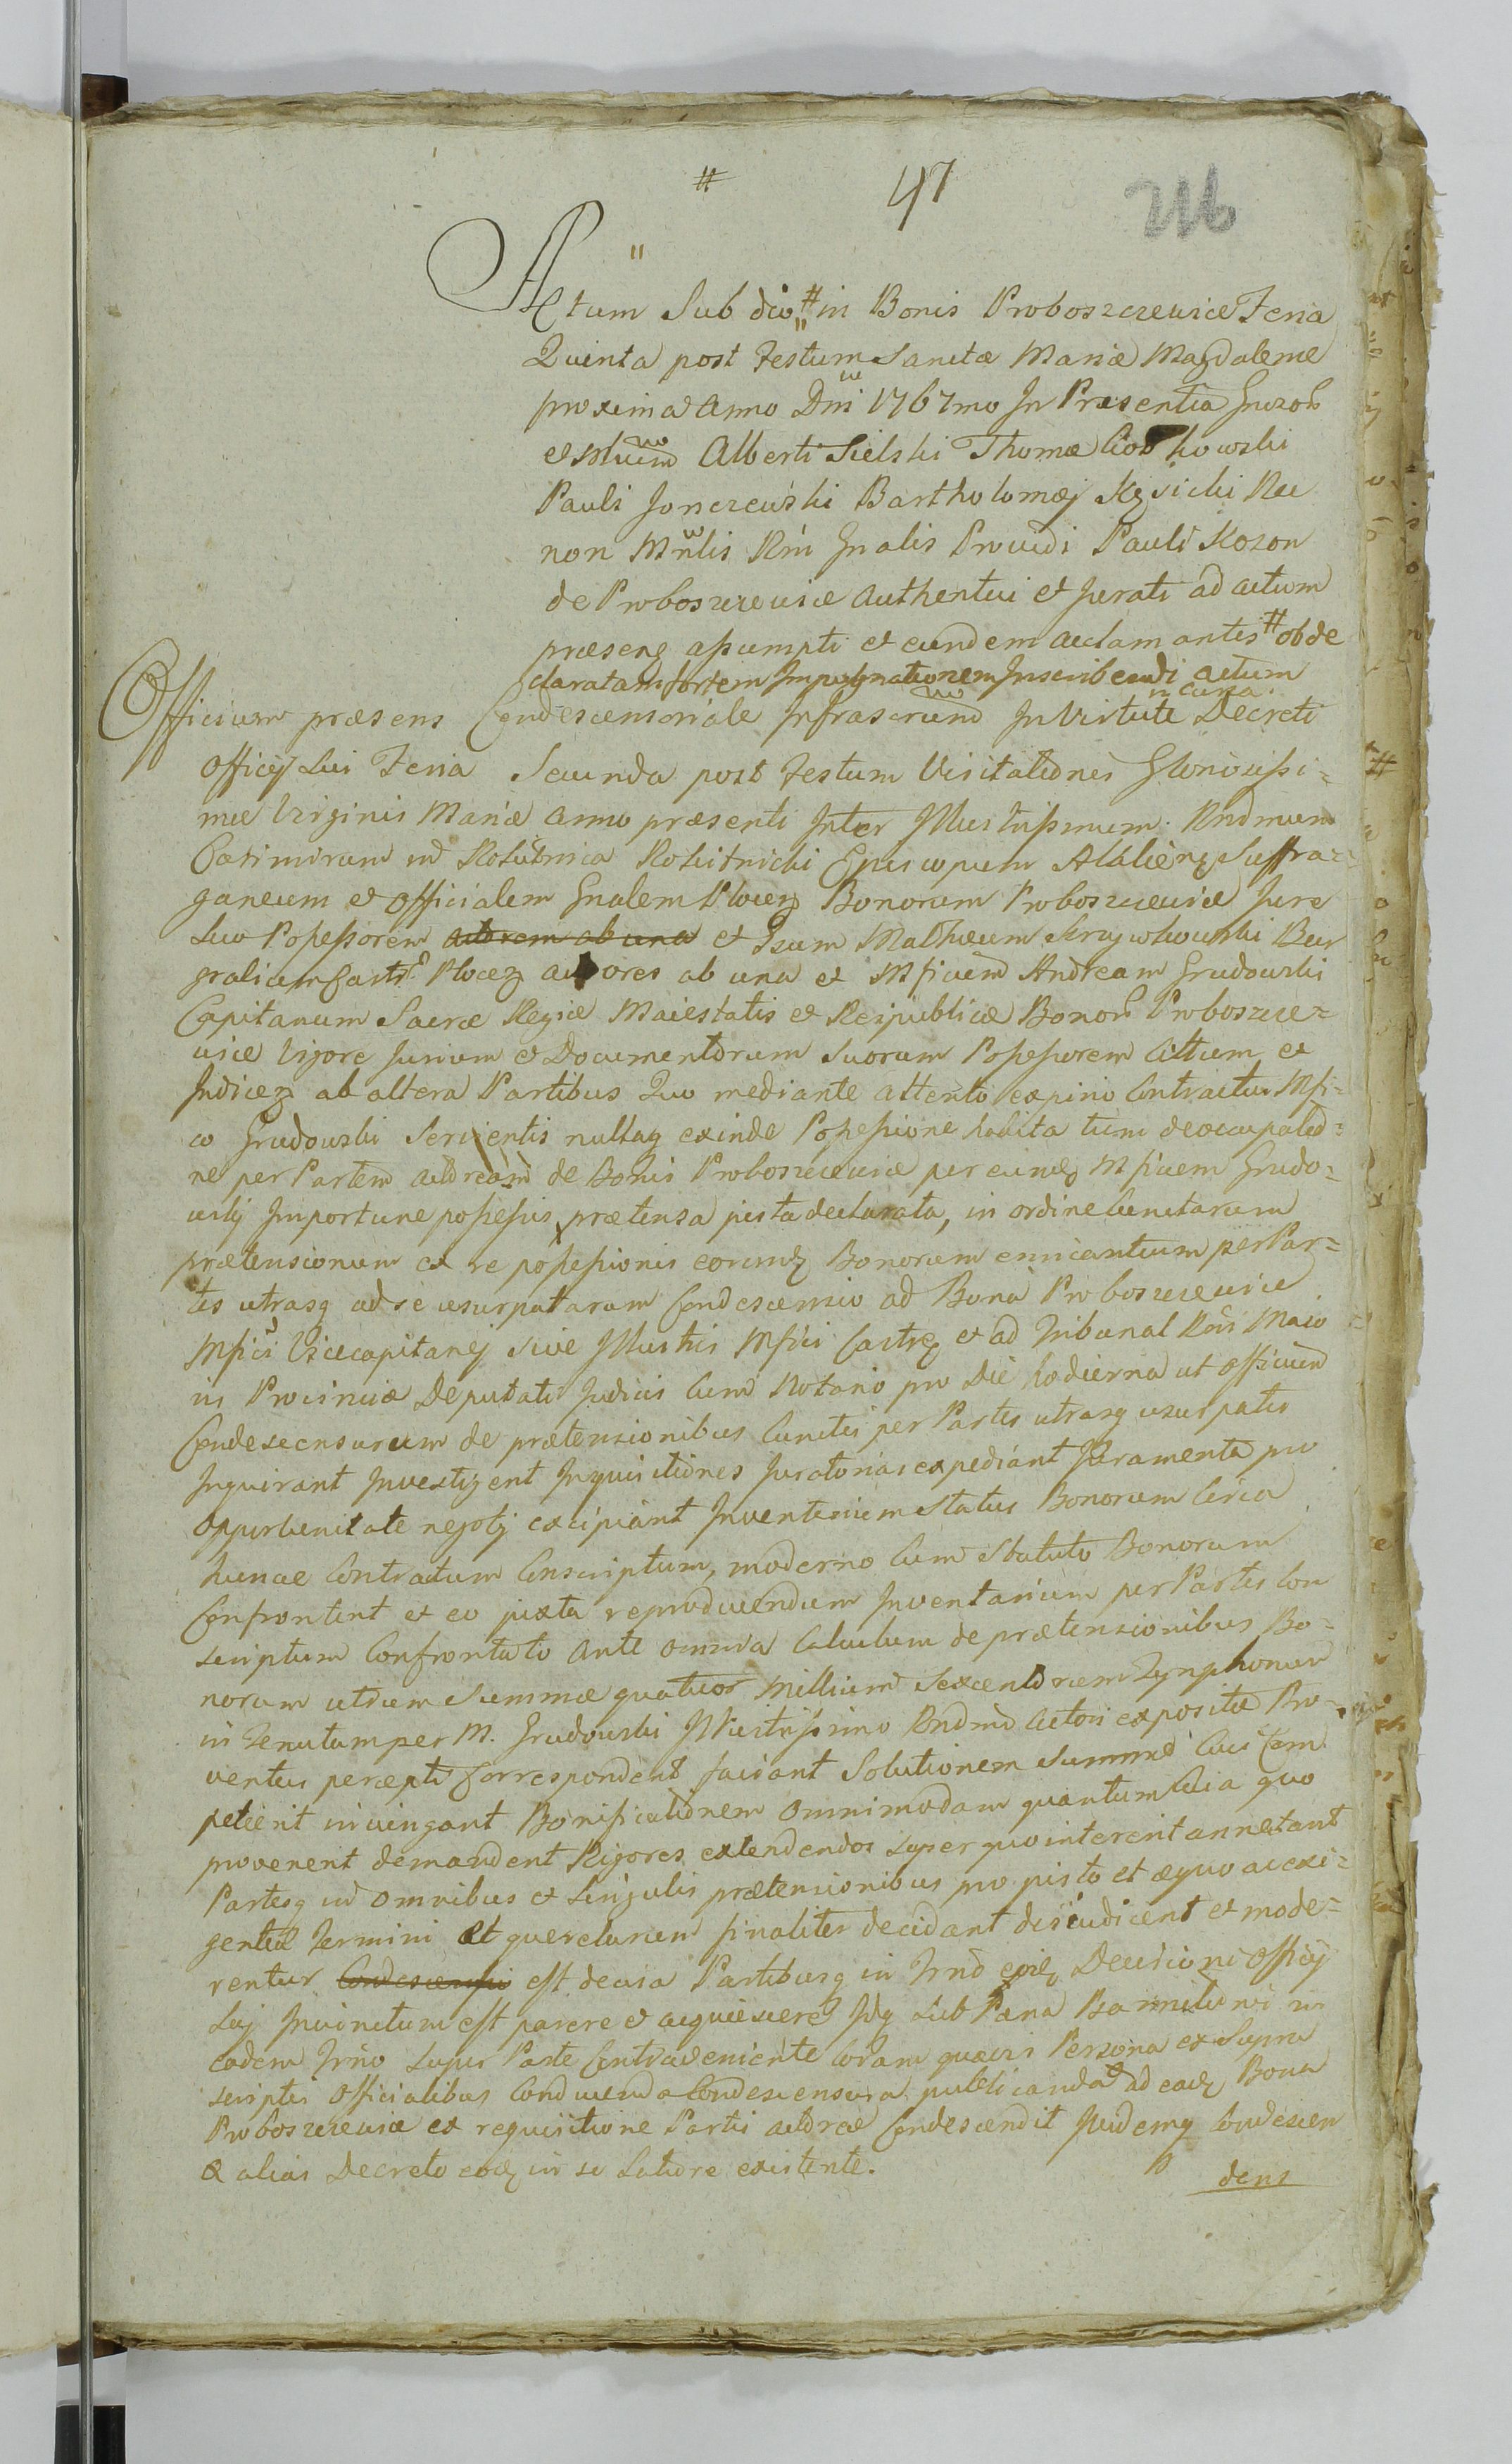 # 47 216
Actum Sub dio # in Bonis Proboszczewice Feria
Quinta post Festum Sanctæ Mariæ Magdalenæ
proxima Anno Dni 1767mo In Præsentia
et Alberti Sielski Thomæ
Pauli Jonczewski Bartholomæj Kęsicki Nec
non Mnlis Rni Gnalis Providi Pauli Kozon
de Proboszczewice Authentici et Jurati ad actum
præsens assumpti et eundem acclamantis # ob de
claratam fortem Impugnationem Inscribendi actum
Officium præsens Condescensoriale Infrascrium In Virtute in Curia Decreti
Officij Sui Feria Secunda post Festum Visitationis Gloriosissi=
mæ Virginis Mariæ Anno præsenti Inter Illustrissmum Rndmum
Casimirum in Rokitnica Rokitnicki Episcopum Suffra=
ganeum et Officialem Gnalem Plocen Bonorum Proboszczewice Jure
Suo Possessorem actorem ab una et Gsum Mathæum Bur
grabium Castr Plocen actores ab una et Mficum Andream Grudowski
Capitanum Sacræ Regiæ Maiestatis et Reipublicæ Bonor Proboszcze=
wice Vigore Jurium et Documentorum Suorum Possessorem Citatum et
Judicz ab altera Partibus Quo mediante attento expirio Contractus Mfi=
co Grudowski Servientis nullaq exinde Possessione habita tum deoccupatio=
ne per Partem actoream de Bonis Proboszczewice per eundem Mficum Grudo=
wskj Importune possessis prætensa justa declarata, in ordine Cunctarum
prætensionum ex re possessionis eorumdem Bonorum enucantium per Par=
tes utrasq ad se usurpatarum Condescensio ad Bona Proboszczewice
Mfici Vicecapitanej sive Illustris Mfici Castren et ad Tribunal Regni Maio
ris Provinciæ Deputati Judicis Cum Notario pro Die hodierna ut Officium
Condescensurum de prætensionibus Cunctis per Partes utrasq usurpatis
Inquirant Investigent Inquisitiones Juratorias expediant Juramenta pro
opportunitate negotij excipiant Inventarium Status Bonorum Circa
hunce Contractum Conscriptum, moderno Cum Statuto Bonorum
Confrontent et eo juxta reproducendum Inventarium per Partes Con
scriptum Confrontato Ante omnia Calculum de prætensionibus Bo=
norum utrum Summæ quatuor Millium Sexcentorum Tynphonum
in Tenutam per M. Grudowski Illustrissimo Rndmo Actori expositæ Pro=
ventus percepti Correspondent faciant Solutionem Summæ Cui Com
petierit iniungant Bonificationem Omnimodam quantum Cuia quo
provenerit demandent Rigores extendendos super quo interерit annectant
Partesq in omnibus et Singulis prætensionibus pro justo et æquo ac exi=
gentia Termini et querelarum finaliter decidant diiudicent et mode=
rentur Condescensio est decisa Partibusq in Trno Decisioni Officij
Suj Iniunctum est parere et acquiescere Idq Sub Pæna Bannitionis in
eodem Trno Super Parte Contraveniente Coram quavis Persona ex Supra
scriptis Officialibus Conducenda Condescensura publicanda ad eadem Bona
Proboszczewice ex requisitione Partis actoreæ Condescendit Ibidemq Condescen
& alias Decreto eodem in se Latiore existente.
dens